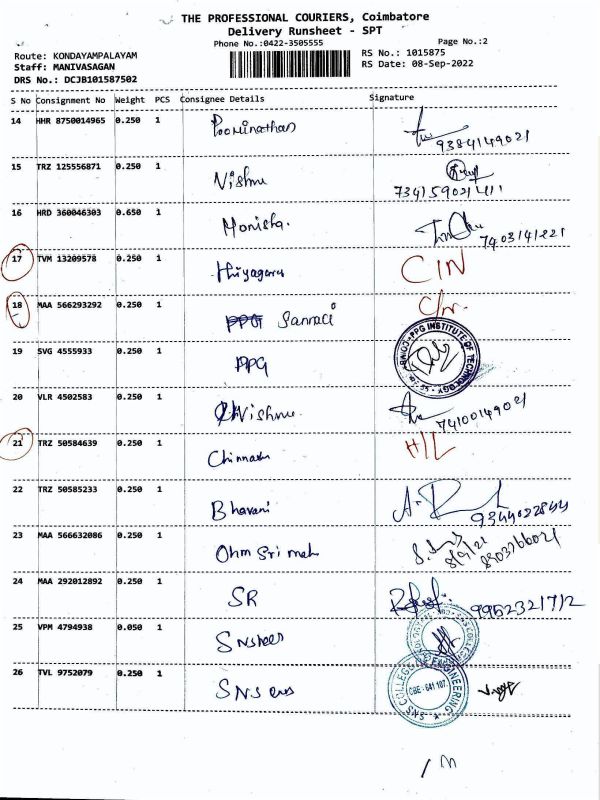 THE PROFESSIONAL COURIERS, Coimbatore
Delivery Runsheet - SPT
Phone No.:0422-3505555 Page No.:2
Route: KONDAYAMPALAYAM RS No.: 1015875
Staff: MANIVASAGAN RS Date: 08-Sep-2022
DRS No.: DCJB101587502
S No Consignment No Weight PCS Consignee Details Signature
14 HHR 8750014965 0.250 1 Poominathan
9384149021
15 TRZ 125556871 0.250 1 Vishnu
16 HRD 360046303 0.650 1 Monisha.
7403141221
17 TVM 13209578 0.250 1 Thiyagaru C/N
18 MAA 566293292 0.250 1 PPG Sanmaci C/N.
19 SVG 4555933 0.250 1 PPG
PPG INSTITUTE OF TECHNOLOGY
20 VLR 4502583 0.250 1 Vishnu
7410014902/
21 TRZ 50584639 0.250 1 Chinnasu H/L
22 TRZ 50585233 0.250 1 Bhavani
9344022844
23 MAA 566632086 0.250 1 Ohm Sri mah
24 MAA 292012892 0.250 1 SR
9952321712
25 VPM 4794938 0.050 1
26 TVL 9752079 0.250 1 SNS
SNS COLLEGE OF ENGINEERING
CBE - 641 107.